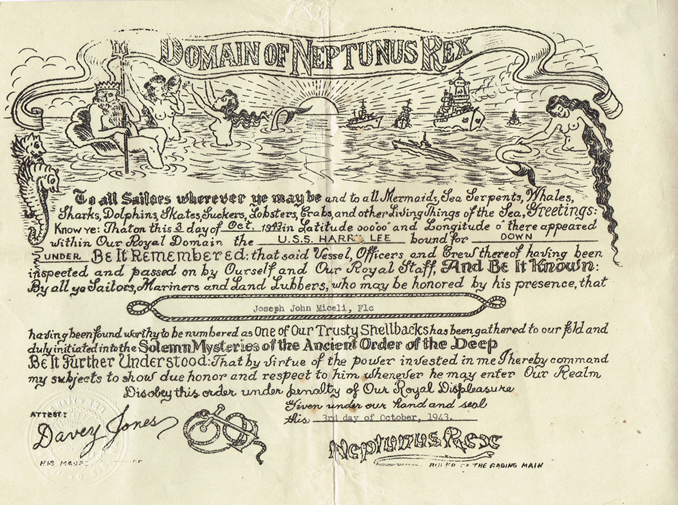 DOMAIN OF NEPTUNUS REX
To all Sailors wherever ye may be and to all Mermaids, Sea Serpents, Whales,
Sharks, Dolphins, Skates, Suckers, Lobsters, Crabs, and other Living Things of the Sea, Greetings:
Know ye: That on this 3 day of Oct. 1943 in Latitude 00°00' and Longitude 0° there appeared
within Our Royal Domain the U.S.S. HARRY LEE bound for DOWN
UNDER Be It Remembered: that said Vessel, Officers and Crew thereof having been
inspected and passed on by Ourself and Our Royal Staff, And Be It Known:
By all ye Sailors, Mariners and Land Lubbers, who may be honored by his presence, that
Joseph John Miceli, F1c
having been found worthy to be numbered as One of Our Trusty Shellbacks has been gathered to our fold and
duly initiated into the Solemn Mysteries of the Ancient Order of the Deep
Be It Further Understood: That by virtue of the power invested in me I hereby command
my subjects to show due honor and respect to him whenever he may enter Our Realm
Disobey this order under penalty of Our Royal Displeasure
Given under our hand and seal
this 3rd day of October, 1943.
ATTEST:
Davey Jones
Neptunus Rex
HIS
RULER OF THE RAGING MAIN